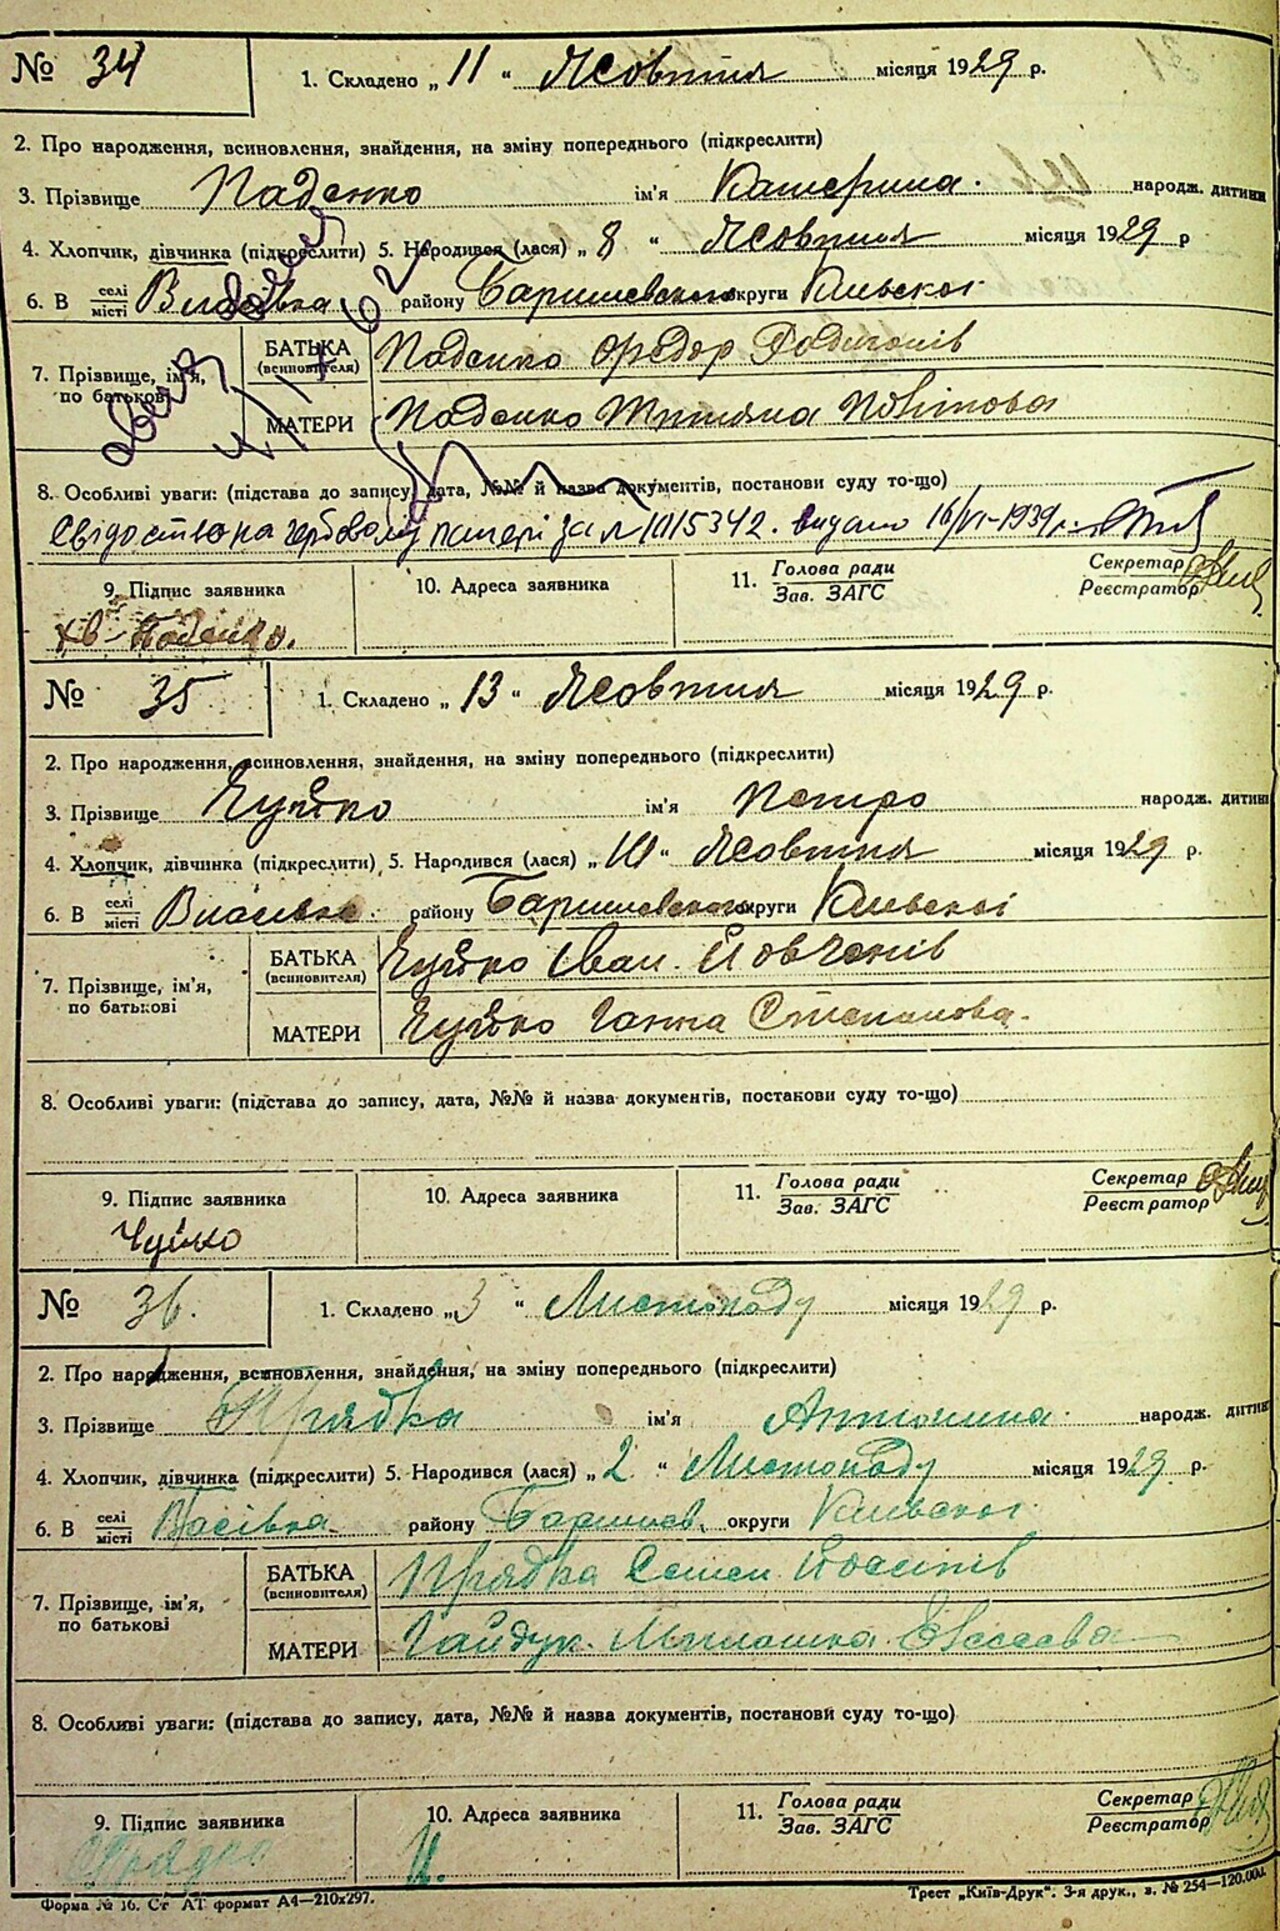 № 34 1. Складено „ 11 “ Жовтня місяця 1929 р.
2. Про народження, всиновлення, знайдення, на зміну попереднього (підкреслити)
3. Прізвище Паденко ім'я Катерина. народж. дитини
4. Хлопчик, дівчинка (підкреслити) 5. Народився (лася) „ 8 “ Жовтня місяця 1929 р
6. В селі місті Власівка району Баришевського округи Київської
7. Прізвище, ім'я, по батькові БАТЬКА (всиновителя) Паденко Федор Родионів
МАТЕРИ Паденко Титяна
8. Особливі уваги: (підстава до запису, дата, №№ й назва документів, постанови суду то-що)
Свідоство на гербовому папері за № 1015342. видано 16/VI-1939 р.
9. Підпис заявника 10. Адреса заявника 11. Голова ради Зав. ЗАГС Секретар Реєстратор
Паденко.
№ 35 1. Складено „ 13 “ Жовтня місяця 1929 р.
2. Про народження, всиновлення, знайдення, на зміну попереднього (підкреслити)
3. Прізвище Чуйко ім'я Петро народж. дитини
4. Хлопчик, дівчинка (підкреслити) 5. Народився (лася) „ 10 “ Жовтня місяця 1929 р.
6. В селі місті Власівка. району Баришевського округи Київської
7. Прізвище, ім'я, по батькові БАТЬКА (всиновителя) Чуйко Іван.
МАТЕРИ Чуйко Ганна Степанова.
8. Особливі уваги: (підстава до запису, дата, №№ й назва документів, постанови суду то-що)
9. Підпис заявника 10. Адреса заявника 11. Голова ради Зав. ЗАГС Секретар Реєстратор
Чуйко
№ 36. 1. Складено „ 3 “ Листопаду місяця 1929 р.
2. Про народження, всиновлення, знайдення, на зміну попереднього (підкреслити)
3. Прізвище Прядка ім'я Антонина. народж. дитини
4. Хлопчик, дівчинка (підкреслити) 5. Народився (лася) „ 2 “ Листопаду місяця 1929 р.
6. В селі місті Власівка. району Баришев. округи Київської
7. Прізвище, ім'я, по батькові БАТЬКА (всиновителя) Прядка Семен Йосипів
МАТЕРИ Гайдук. Милашка Євсеева
8. Особливі уваги: (підстава до запису, дата, №№ й назва документів, постанови суду то-що)
9. Підпис заявника 10. Адреса заявника 11. Голова ради Зав. ЗАГС Секретар Реєстратор
Форма № 16. Ст АТ формат А4—210х297. Трест „Київ-Друк“. 3-я друк., з. № 254—120.000.